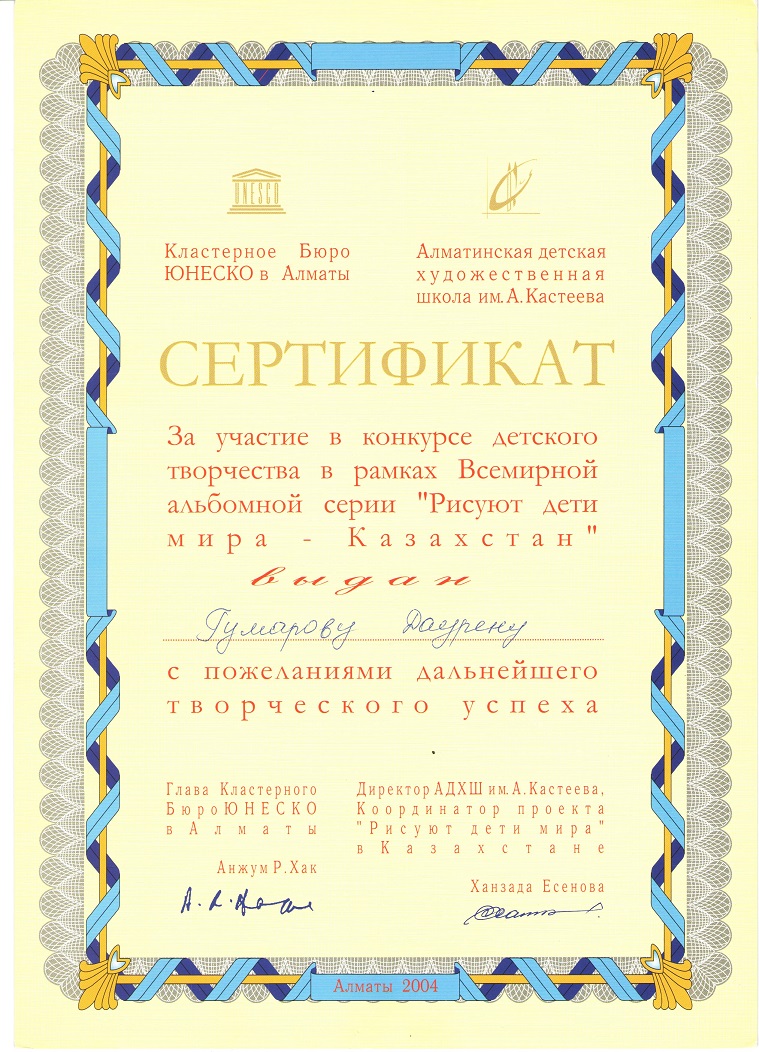 UNESCO
Кластерное Бюро
ЮНЕСКО в Алматы
Алматинская детская
художественная
школа им. А. Кастеева
СЕРТИФИКАТ
За участие в конкурсе детского
творчества в рамках Всемирной
альбомной серии "Рисуют дети
мира - Казахстан"
выдан
Гумарову Даурену
с пожеланиями дальнейшего
творческого успеха
Глава Кластерного
Бюро ЮНЕСКО
в Алматы
Анжум Р. Хак
Директор АДХШ им. А. Кастеева,
Координатор проекта
"Рисуют дети мира"
в Казахстане
Ханзада Есенова
Алматы 2004